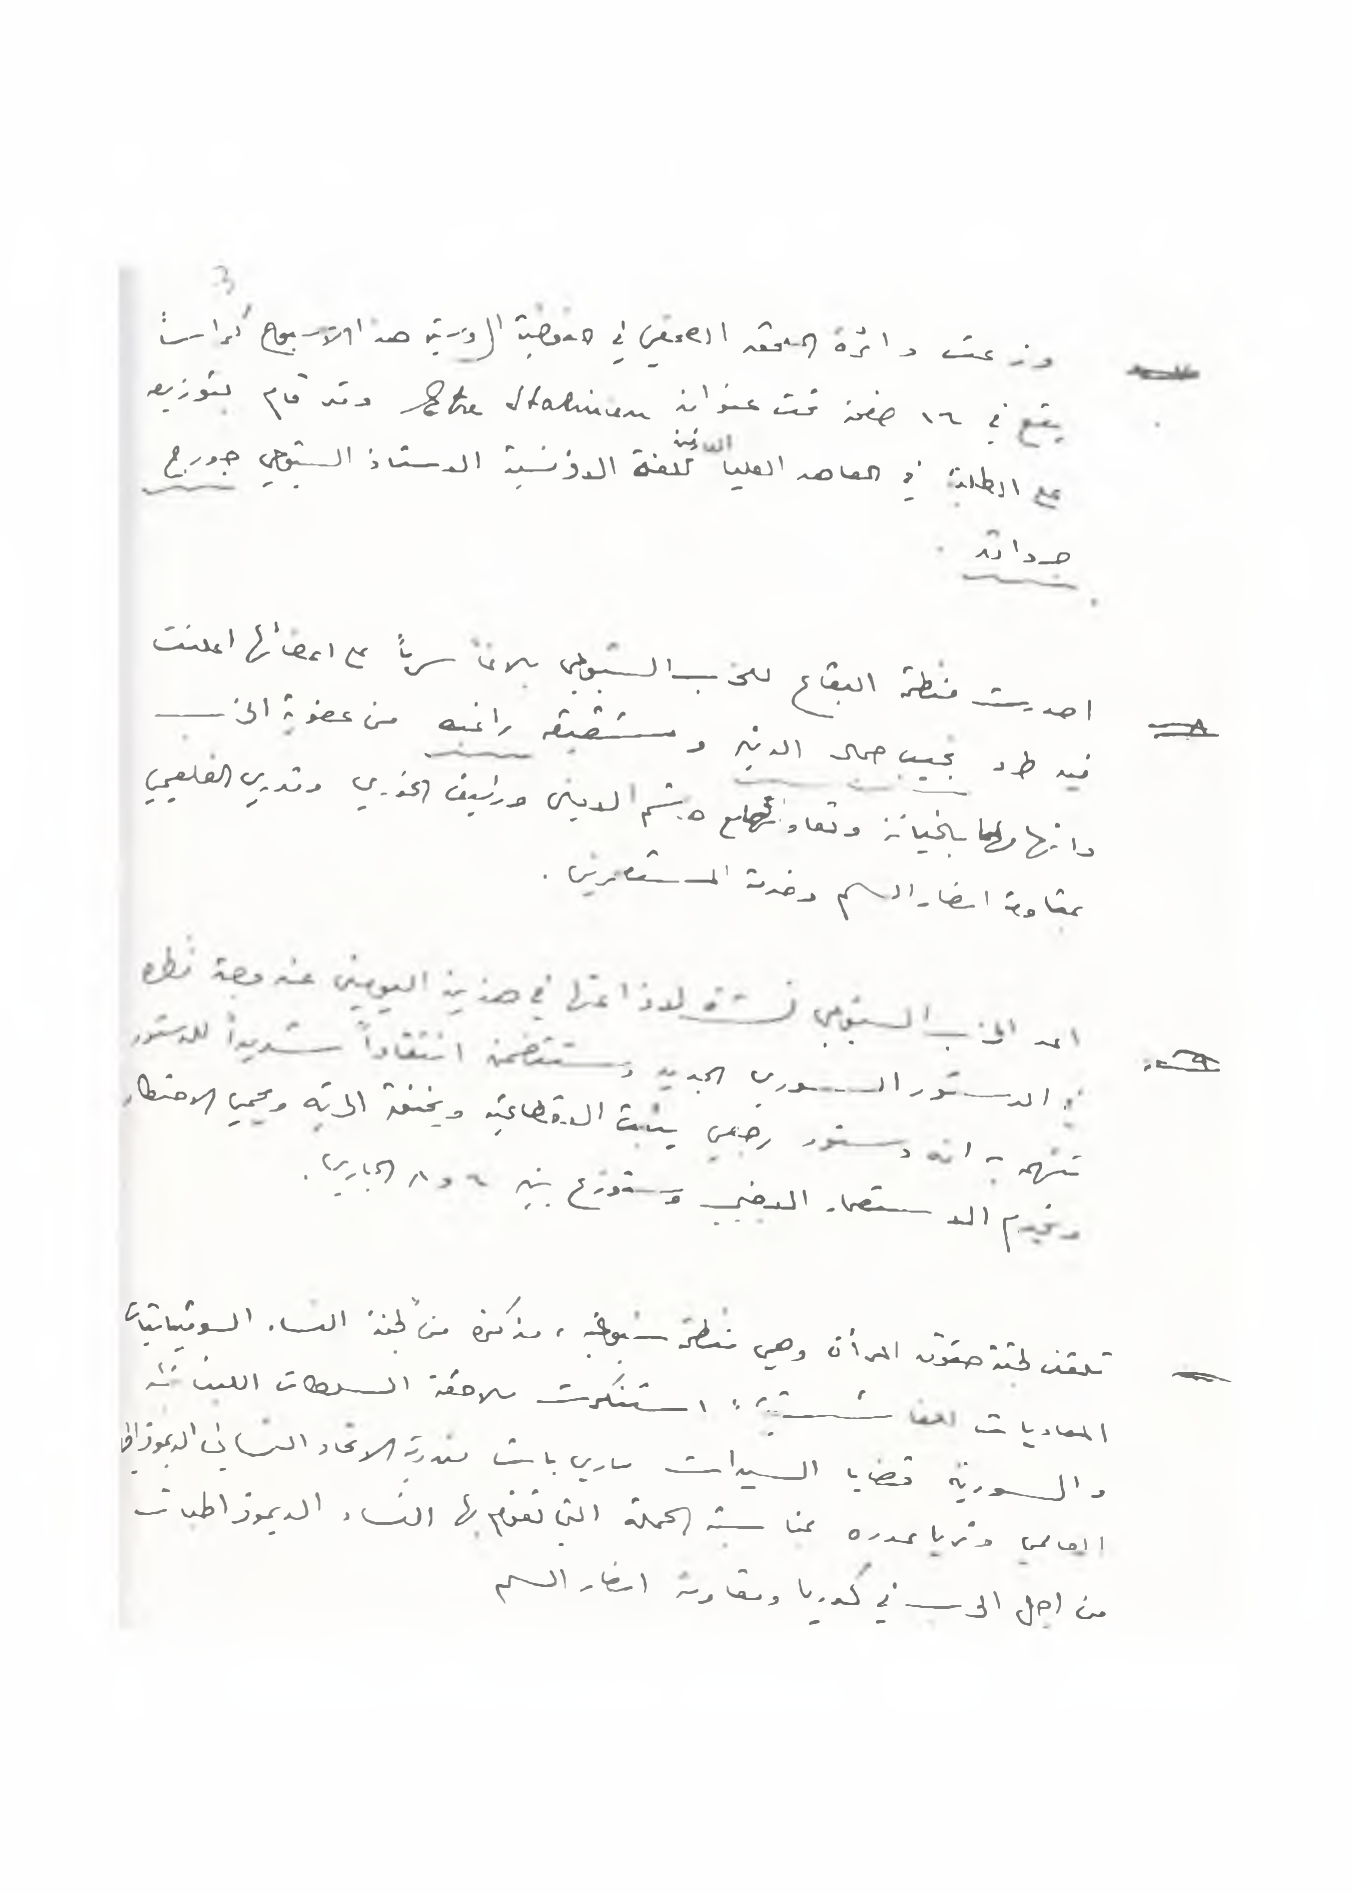 3
وزعت دائرة الملحق الصحفي في المفوضية الروسية هذا الاسبوع كراساً
يقع في ١٦ صفحة تحت عنوان Etre Stalinien وقد قام بتوزيعه
على الطلبة في المعاهد العليا للغة الافرنسية الاستاذ الشيوعي جورج
حداد .
٨ اصدرت منظمة البقاع للحزب الشيوعي بلاغاً سرياً على اعضائها اعلنت
فيه طرد نجيب جمال الدين وشقيقه راغب من عضوية الحزب
واتهامهما بالخيانة وتعاونهما مع هاشم الامين ورئيف الخوري وقدري القلعجي
بمقاومة انصار السلم وخدمة المستعمرين .
٩ اعد الحزب الشيوعي نشرة لاذاعتها في هذين اليومين عن وجهة نظره
في الدستور السوري الجديد وستتضمن انتقاداً شديداً للدستور
تتهمه بانه دستور رجعي يثبت الاقطاعية ويخنق الحرية ويحمي الاحتكار
ويخدم الاستعمار الاجنبي وستوزع بين ٦ و ٨ الجاري .
تلقت لجنة حقوق المرأة وهي منظمة شيوعية ، مذكرة من لجنة النساء السوفياتيات
المعاديات للفاشستية ، استنكرت ملاحقة السلطات اللبنانية
والسورية قضايا السيدات ماري ثابت مندوبة الاتحاد النسائي الديموقراطي
العالمي وثريا بمناسبة الحملة التي تقوم بها النساء الديموقراطيات
من اجل الحرب في كوريا ومقاومة انصار السلم